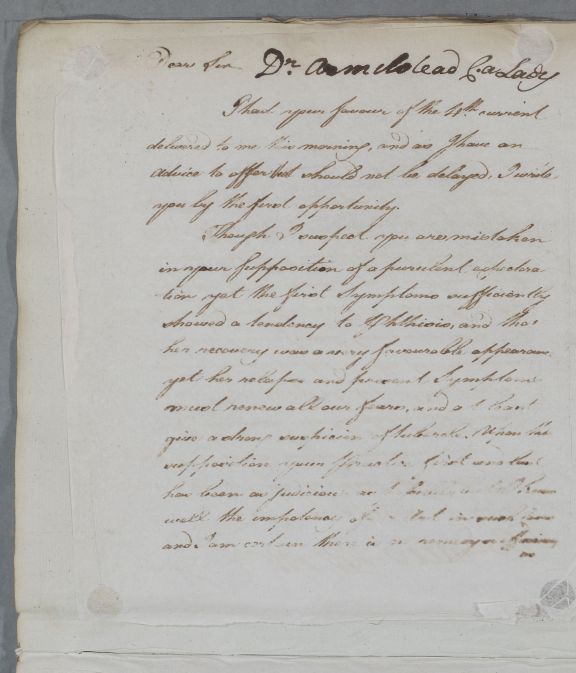 Dear Sir Dr. Armistead for a Lady
I had your favour of the 4th current
delivered to me this morning, and as I have an
advice to offer that should not be delayed, I write
you by the first opportunity.
Though I suspect you are mistaken
in your supposition of a purulent expectora
tion yet the first Symptoms sufficiently
showed a tendency to Phthisis, and tho'
her recovery was a very favourable appearance
yet her relapse and present Symptoms
must renew all our fears, and at least
give a strong suspicion of tubercle. Upon this
supposition your
has been as judicious as
well the impotence of
and I am certain there is no remedy
no